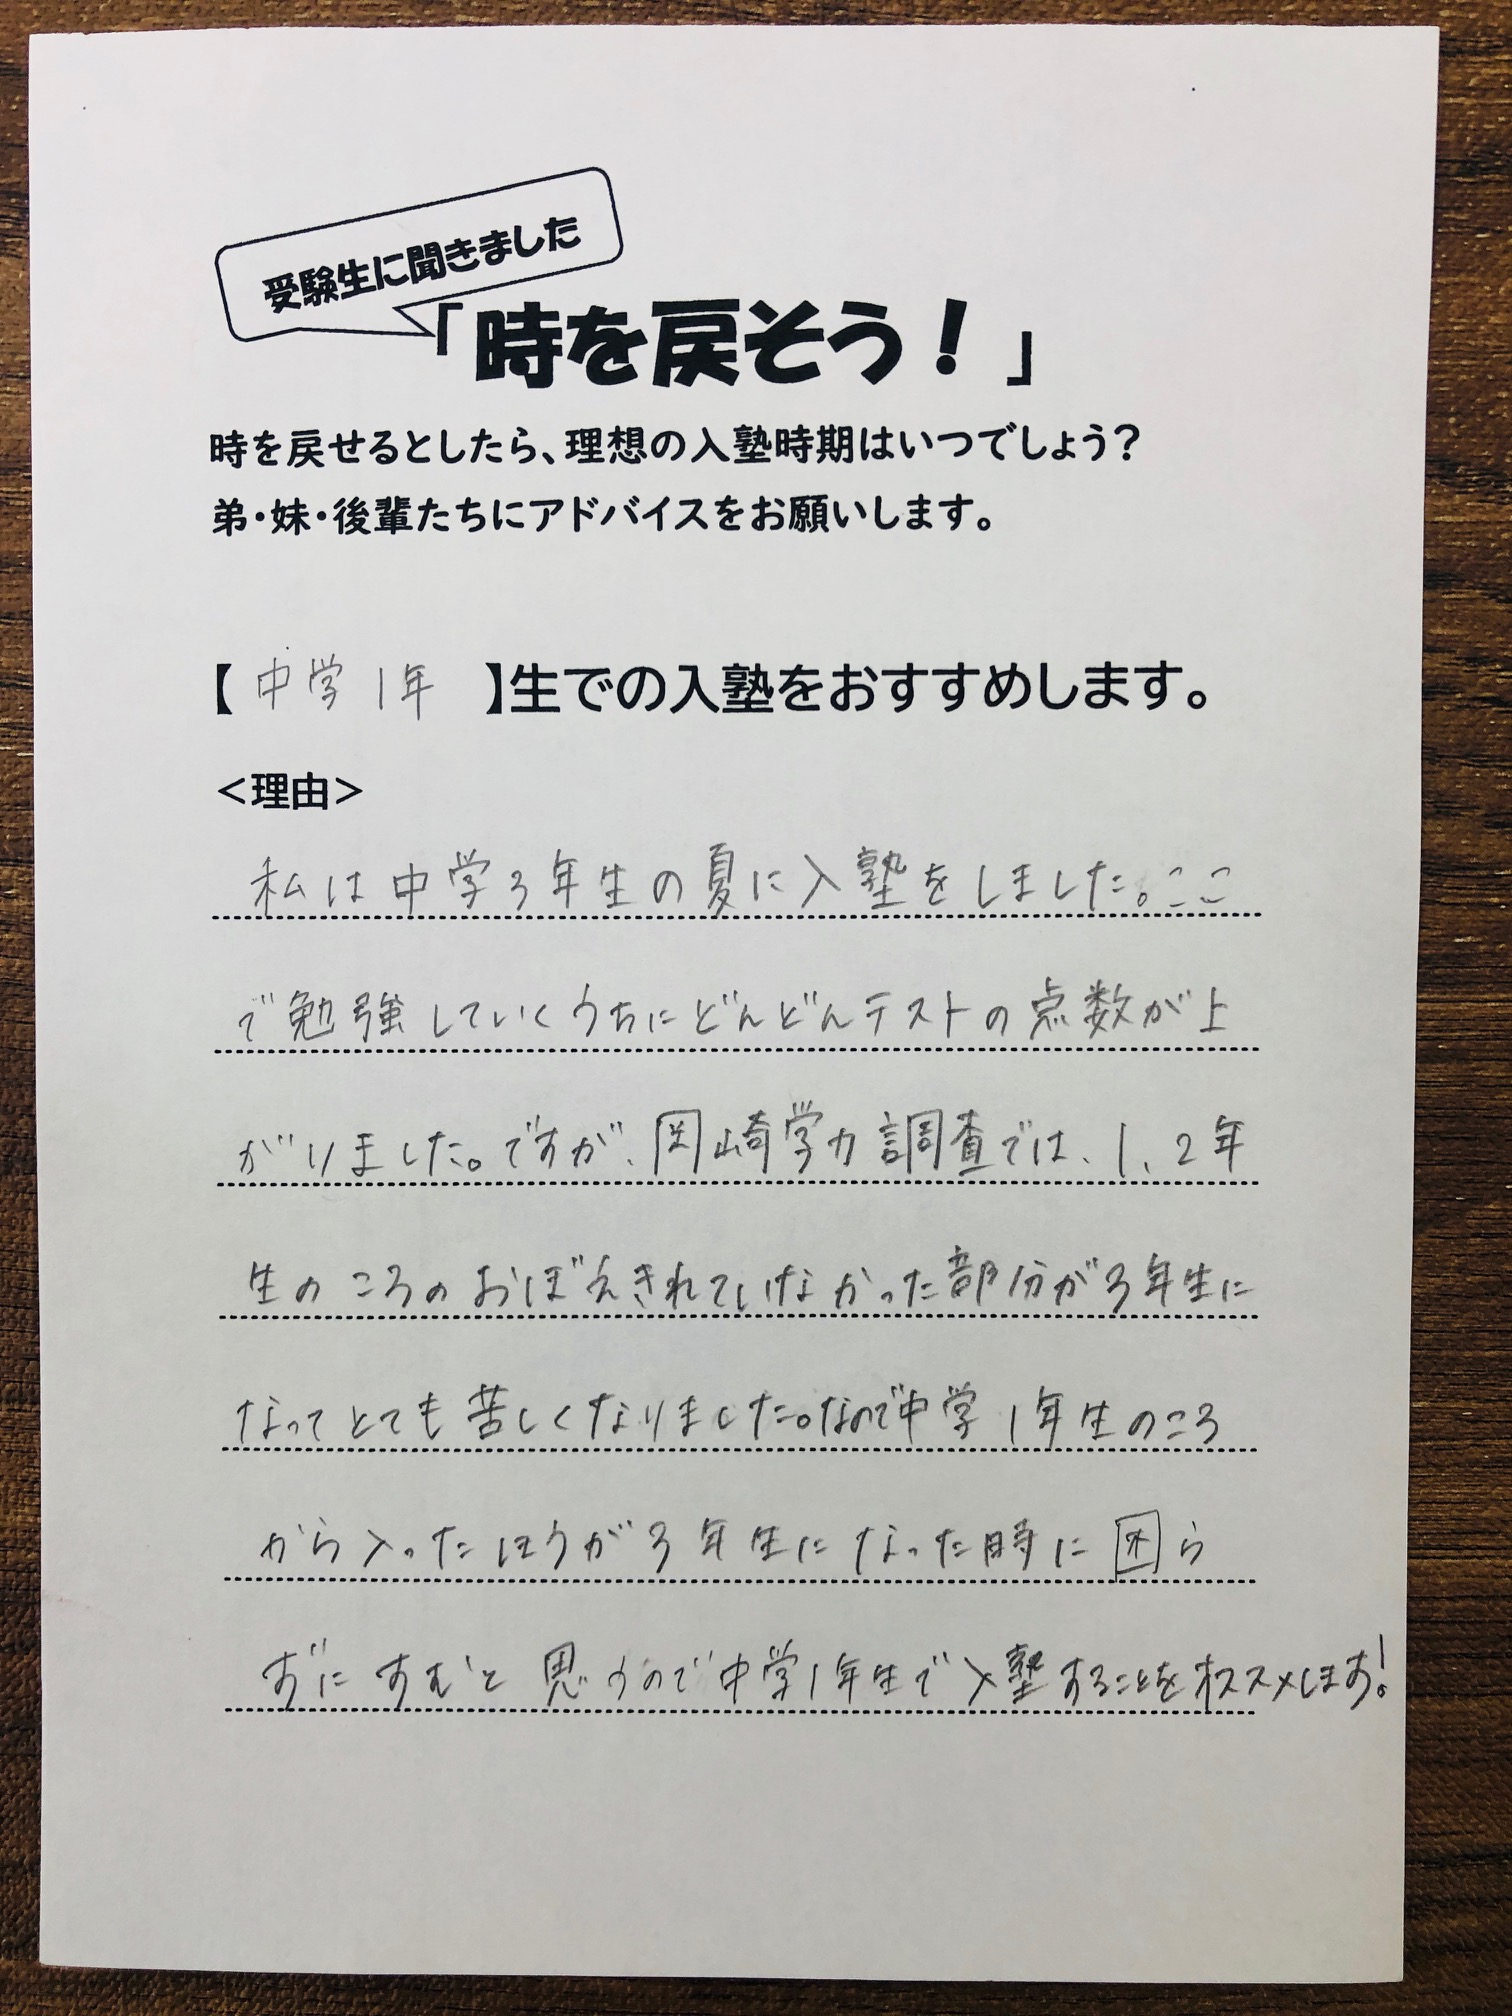 受験生に聞きました
「時を戻そう！」
時を戻せるとしたら、理想の入塾時期はいつでしょう？
弟・妹・後輩たちにアドバイスをお願いします。
【中学1年】生での入塾をおすすめします。
＜理由＞
私は中学3年生の夏に入塾をしました。ここ
で勉強していくうちにどんどんテストの点数が上
がりました。ですが、岡崎学力調査では、1、2年
生のころのおぼえきれていなかった部分が3年生に
なってとても苦しくなりました。なので中学1年生のころ
から入ったほうが3年生になった時に困ら
ずにすむと思うので中学1年生で入塾することをオススメします！